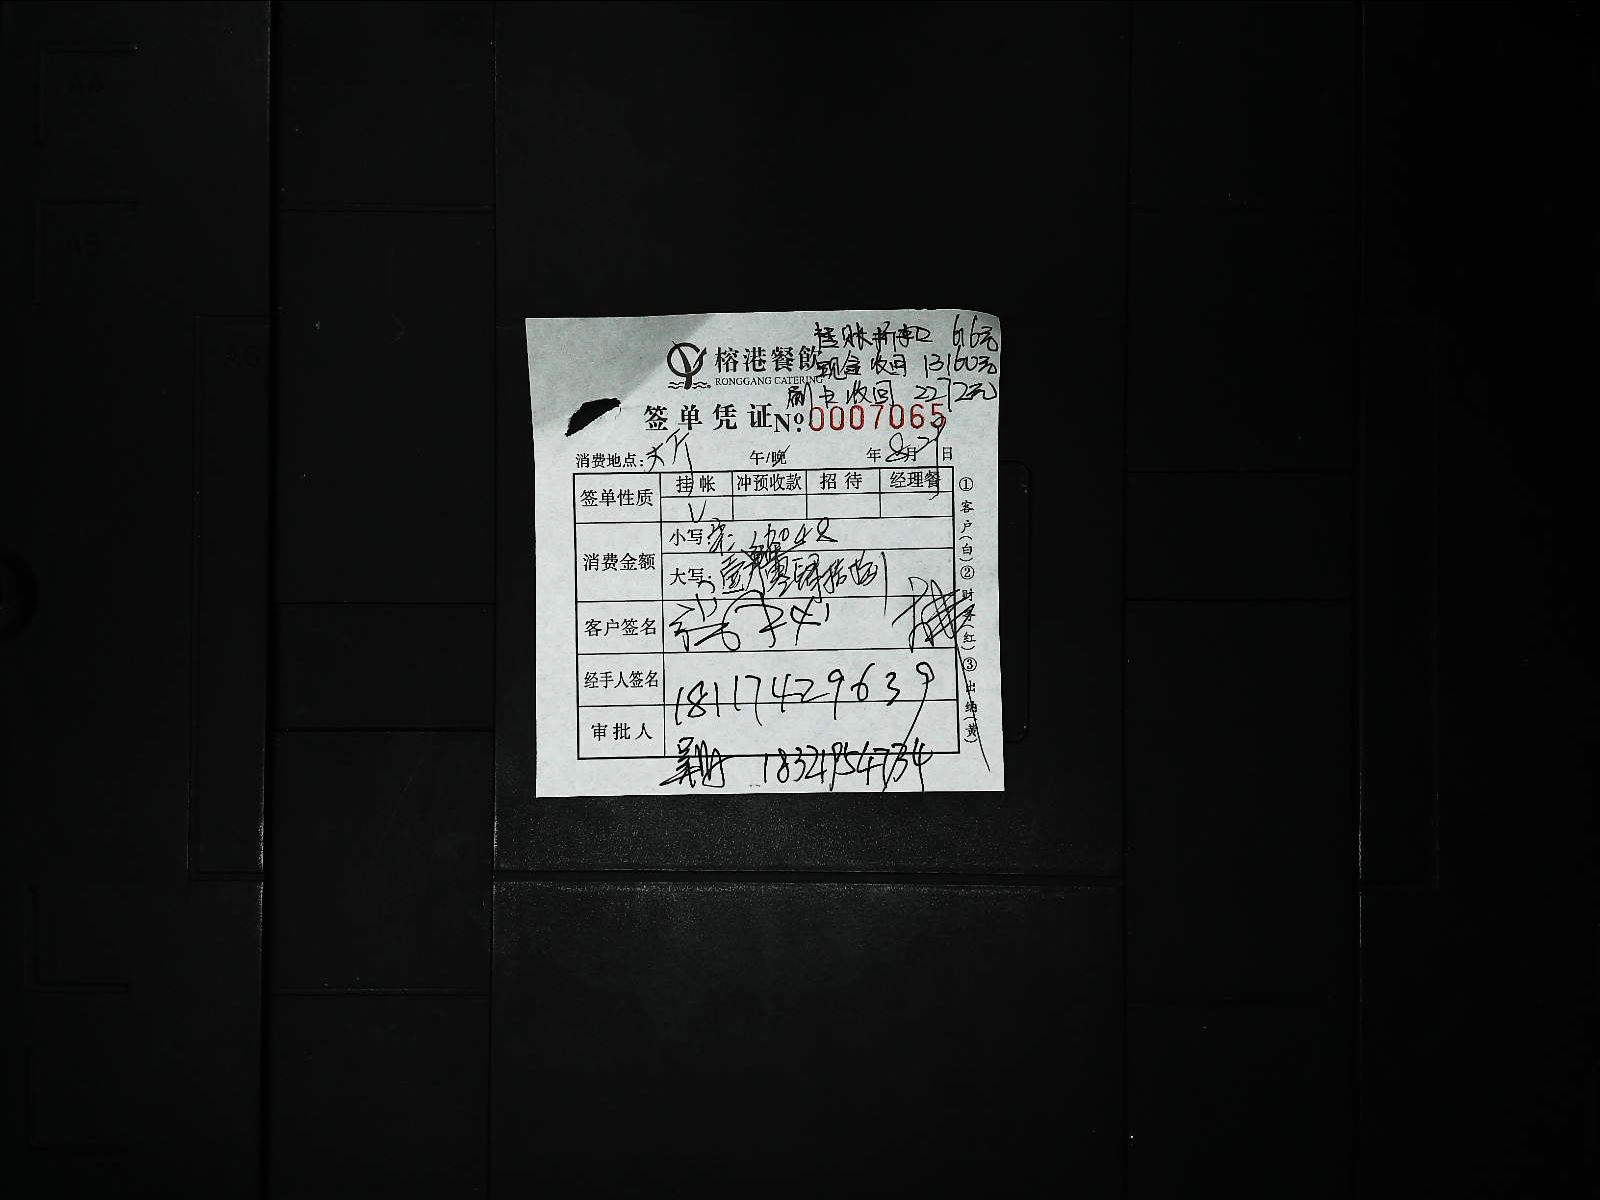 挂账折扣 616元
榕港餐飲 现金收回 13160元
RONGGANG CATERING
刷卡收回 2272元
签单凭证 No:0007065
消费地点:大厅 午/晚 年8月29日
签单性质 挂帐 冲预收款 招待 经理餐
V
消费金额 小写: 16048
大写: 壹 零肆拾捌
客户签名
经手人签名 18117429639
审批人
18321954734
①客户(白)②财务(红)③出纳(黄)